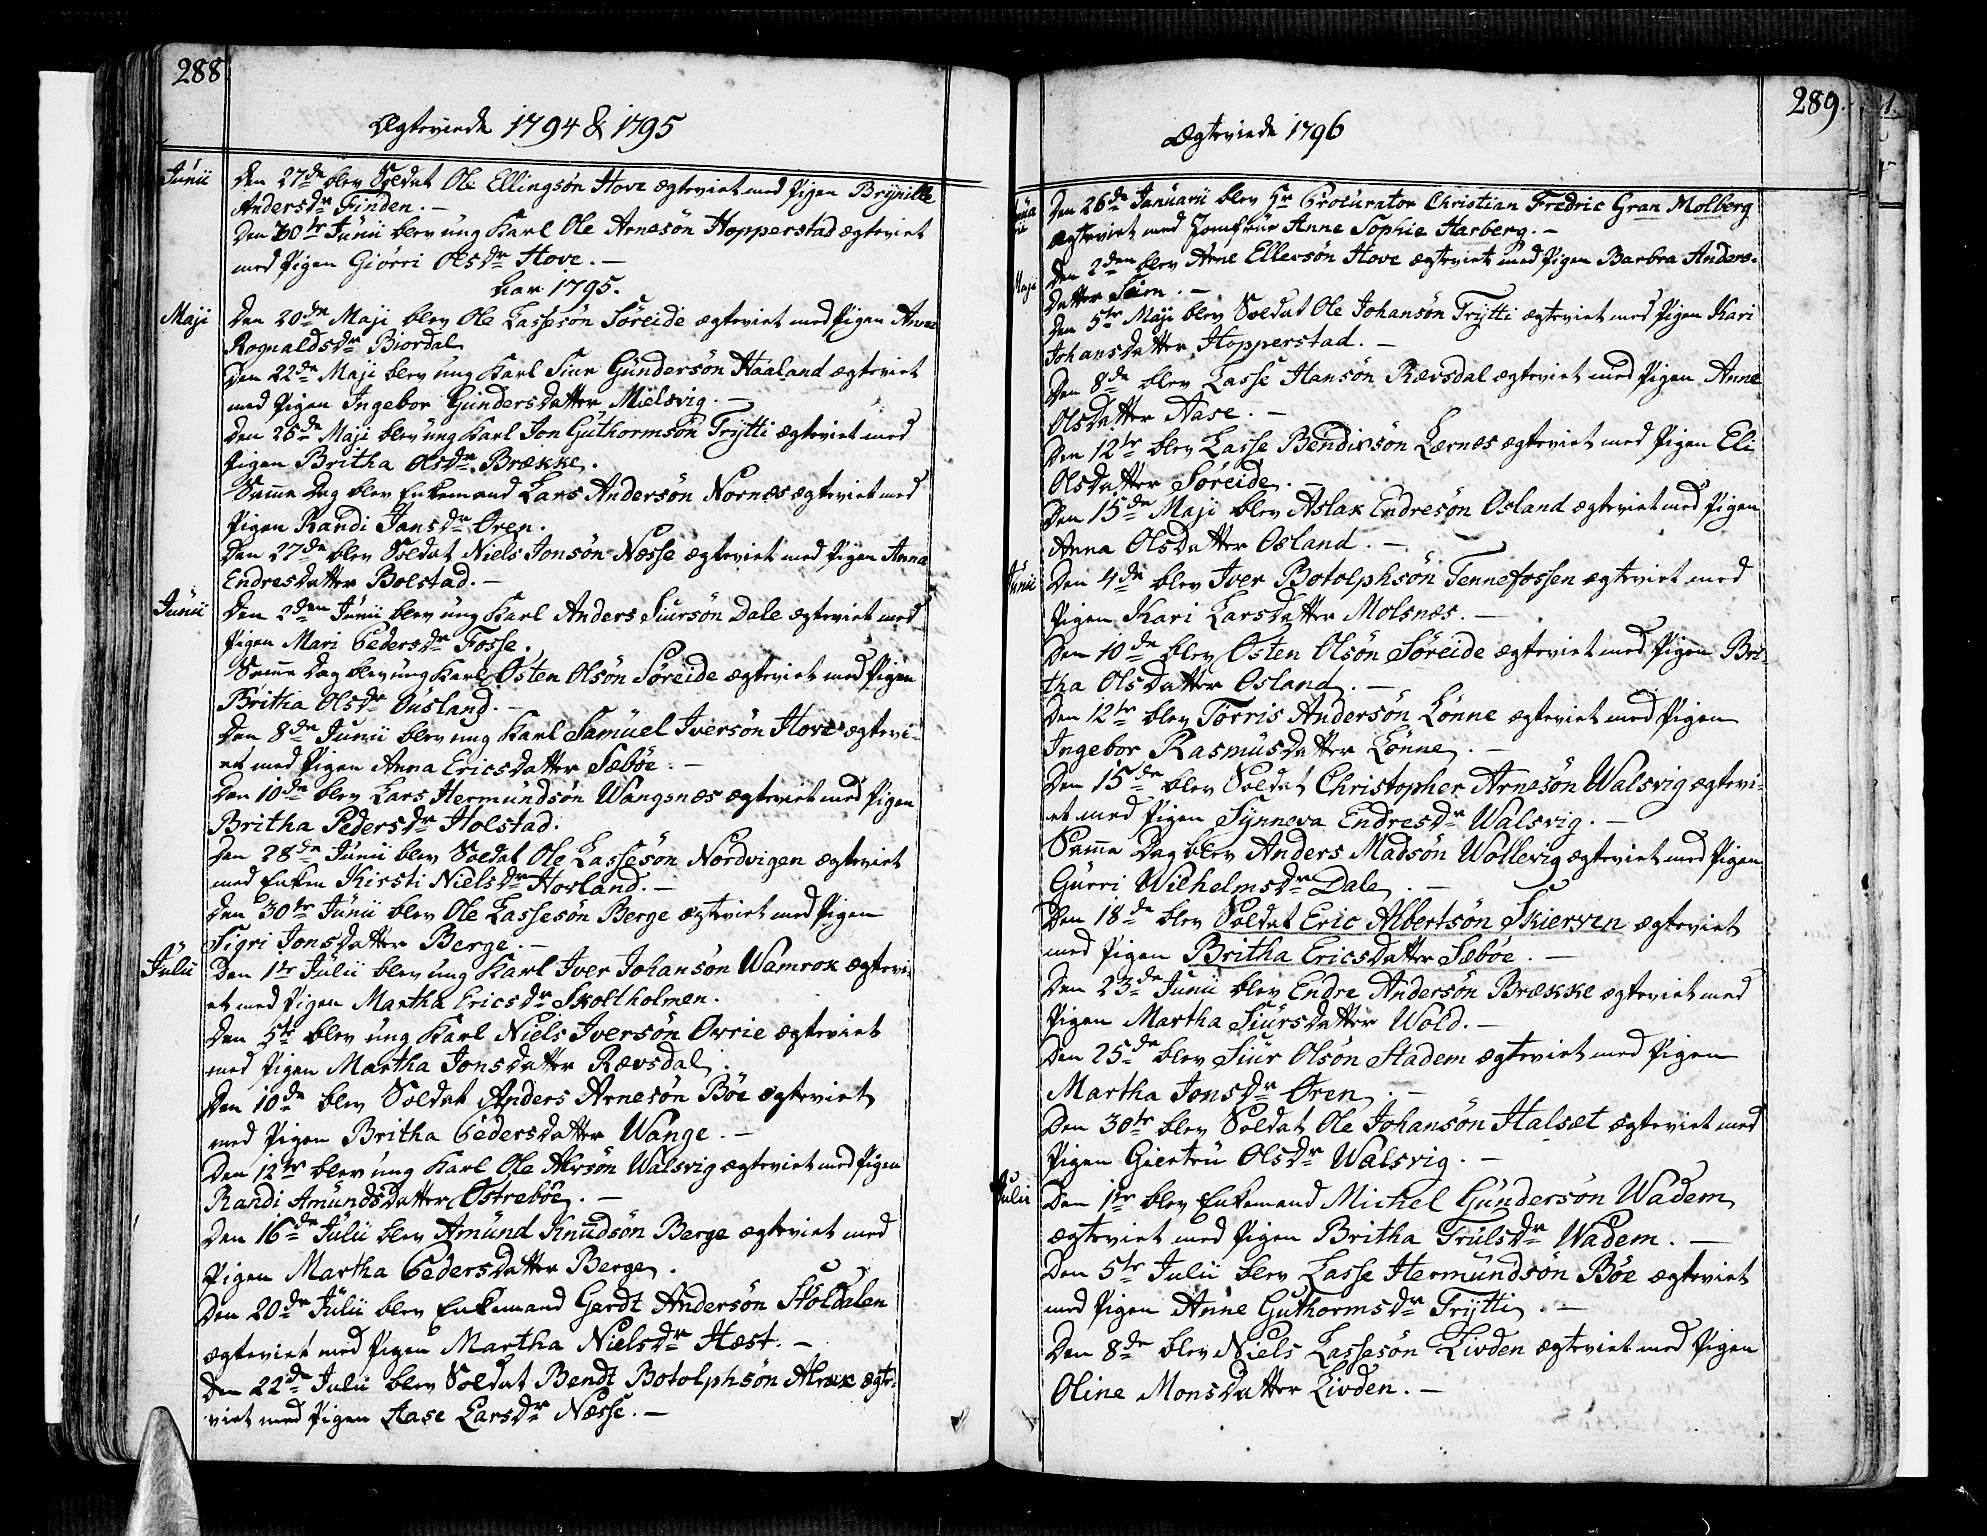 288
Ægteviede 1794 & 1795
Junii
Den 27de blev Soldat Ole Ellingsön Hove ægteviet med Pigen Brynille
Andersdr Finden. -
Den 30te Junii blev ung Karl Ole Arnesön Hopperstad ægteviet
med Pigen Giörri Olsdr Hove. -
1795.
Maji
Den 20de Maji blev Ole Lassesön Söreide ægteviet med Pigen Anna
Rognaldsdr Biordal
Den 22de Maji blev ung Karl Siur Gundersön Haaland ægteviet
med Pigen Ingebor Gundersdatter Mielsvig. -
Den 25de Maji blev ung Karl Jon Guthormsön Trytti ægteviet med
Pigen Britha Olsdr Brække.
Samme Dag blev Enkemand Lars Andersön Nornæs ægteviet med
Pigen Randi Jansdr Øren.
Den 27de blev Soldat Niels Jonsön Næsse ægteviet med Pigen Anna
Endresdatter Bolstad. -
Junii
Den 2den Junii blev ung Karl Anders Siursön Dale ægteviet med
Pigen Mari Pedersdr Fosse.
Samme Dag blev ung Karl Østen Olsön Söreide ægteviet med Pigen
Britha Olsdr Ousland. -
Den 8de Junii blev ung Karl Samüel Iversön Hove ægtevi-
et med Pigen Anna Ericsdatter Sæböe. -
Den 10de blev Lars Hermundsön Wangsnæs ægteviet med Pigen
Britha Pedersdr Holstad.
Den 28de Junii blev Soldat Ole Lassesön Nordvigen ægteviet
med Enken Kirsti Nielsdr Hovland. -
Den 30te Junii blev Ole Lassesön Berge ægteviet med Pigen
Sigri Jonsdatter Berge. -
Julii
Den 1te Julii blev ung Karl Iver Johansön Wamrok ægtevi-
et med Pigen Martha Ericsdr Skoltholmen.
Den 5te blev ung Karl Niels Iversön Ovrie ægteviet
med Pigen Martha Jonsdatter Rævsdal.
Den 10de blev Soldat Anders Arnesön Böe ægteviet
med Pigen Britha Pedersdatter Wange. -
Den 12te blev ung Karl Ole Alvsön Walsvig ægteviet med Pigen
Randi Amundsdatter Østreböe. -
Den 16de Julii blev Amünd Knudsön Berge ægteviet med
Pigen Martha Pedersdatter Berge.
Den 20de Julii blev Enkemand Gerdt Andersön Stöldalen
ægteviet med Pigen Martha Nielsdr Hæst. -
Den 22de Julii blev Soldat Bendt Botolphsön Alrek ægte-
viet med Pigen Aase Larsdr Næsse. -
289.
Ægteviede 1796
Den 26de Januarii blev Hr Procurator Christian Fredric Gran Molberg
ægteviet med Jomfrue Anne Sophie Harberg. -
Maji
Den 2den blev Arne Ellevsön Hove ægteviet med Pigen Barbra Anders-
datter Seim. -
Den 5te Maji blev Soldat Ole Johansön Trytti ægteviet med Pigen Kari
Johansdatter Hopperstad. -
Den 8de blev Lasse Hansön Rævsdal ægteviet med Pigen Anne
Olsdatter Aase. -
Den 12te blev Lasse Bendixsön Lærnes ægteviet med Pigen Eli
Olsdatter Söreide. -
Den 15de Maji blev Aslak Endresön Osland ægteviet med Pigen
Anna Olsdatter Osland. -
Junii
Den 4de blev Iver Botolphsön Tennefossen ægteviet med
Pigen Kari Larsdatter Molsnæs. -
Den 10de blev Østen Olsön Söreide ægteviet med Pigen Bri-
tha Olsdatter Osland. -
Den 12te blev Torris Andersön Lönne ægteviet med Pigen
Ingebor Rasmusdatter Lönne. -
Den 15de blev Soldat Christopher Arnesön Walsvig ægtevi-
et med Pigen Synneva Endresdr Walsvig. -
Samme Dag blev Anders Madsön Wollevig ægteviet med Pigen
Gurri Wilhelmsdr Dale. -
Den 18de blev Soldat Eric Albertsön Skierven ægteviet
med Pigen Britha Ericsdatter Sæböe. -
Den 23de Junii blev Endre Andersön Brække ægteviet med
Pigen Martha Siursdatter Wold. -
Den 25de blev Siür Olsön Stadem ægteviet med Pigen
Martha Jonsdr Øren. -
Den 30te blev Soldat Ole Johansön Halset ægteviet med
Pigen Giertrü Olsdr Walsvig. -
Julii
Den 1te blev Enkemand Michel Gundersön Wadem
ægteviet med Pigen Britha Trulsdr Wadem. -
Den 5te Julii blev Lasse Hermundsön Böe ægteviet
med Pigen Anne Guthormsdr Trytti. -
Den 8de blev Niels Lassesön Livden ægteviet med Pigen
Oline Monsdatter Livden. -